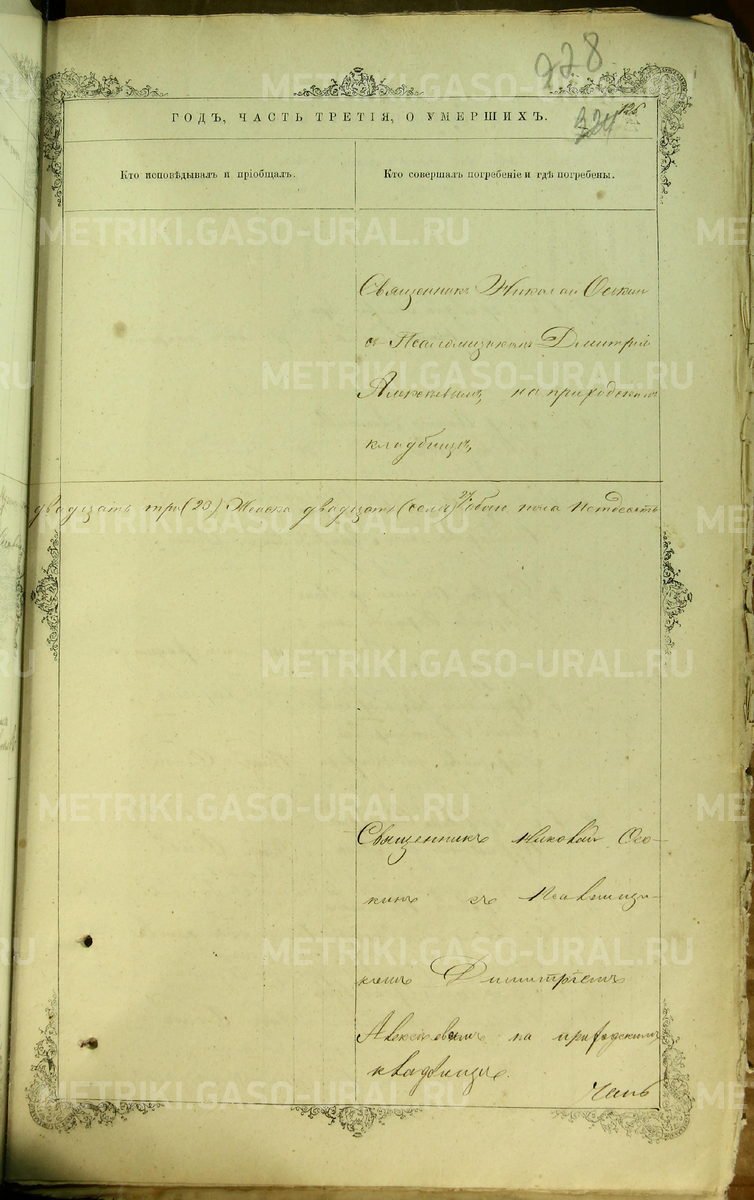 228
324
126
ГОДЪ, ЧАСТЬ ТРЕТІЯ, О УМЕРШИХЪ.
Кто исповѣдывалъ и пріобщалъ.
Кто совершалъ погребеніе и гдѣ погребены.
Священникъ Николай Оскин
съ Псаломщикомъ Дмитріе
Алексѣевымъ, на приходскомъ
кладбищѣ,
двадцать три (23) Женска двадцать (семь) 27 обоего пола Пятдесятъ
Священникъ Николай Осо-
кинъ съ Псаломщи-
комъ Димитріемъ
Алексѣевымъ на приходскомъ
кладбищѣ.
METRIKI.GASO-URAL.RU